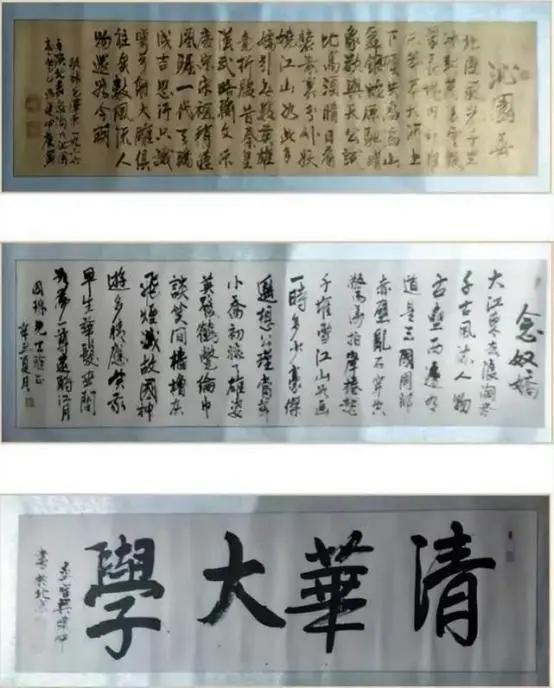 沁園春
北國風光千里
冰封萬里雪飄
望長城內外惟
余莽莽大河上
下頓失滔滔山
舞銀蛇原馳蠟
象欲與天公試
比高須晴日看
紅裝素裹分外妖
嬈江山如此多
嬌引無數英雄
竟折腰惜秦皇
漢武略輸文采
唐宗宋祖稍遜
風騷一代天驕
成吉思汗只識
彎弓射大雕俱
往矣數風流人
物還看今朝
念奴嬌
大江東去浪淘盡
千古風流人物
故壘西邊人
道是三國周郎
赤壁亂石穿空
驚濤拍岸捲起
千堆雪江山如畫
一時多少豪傑
遙想公瑾當年
小喬初嫁了雄姿
英發羽扇綸巾
談笑間檣櫓灰
飛煙滅故國神
遊多情應笑我
早生華髮人間
如夢一尊還酹江月
清華大學